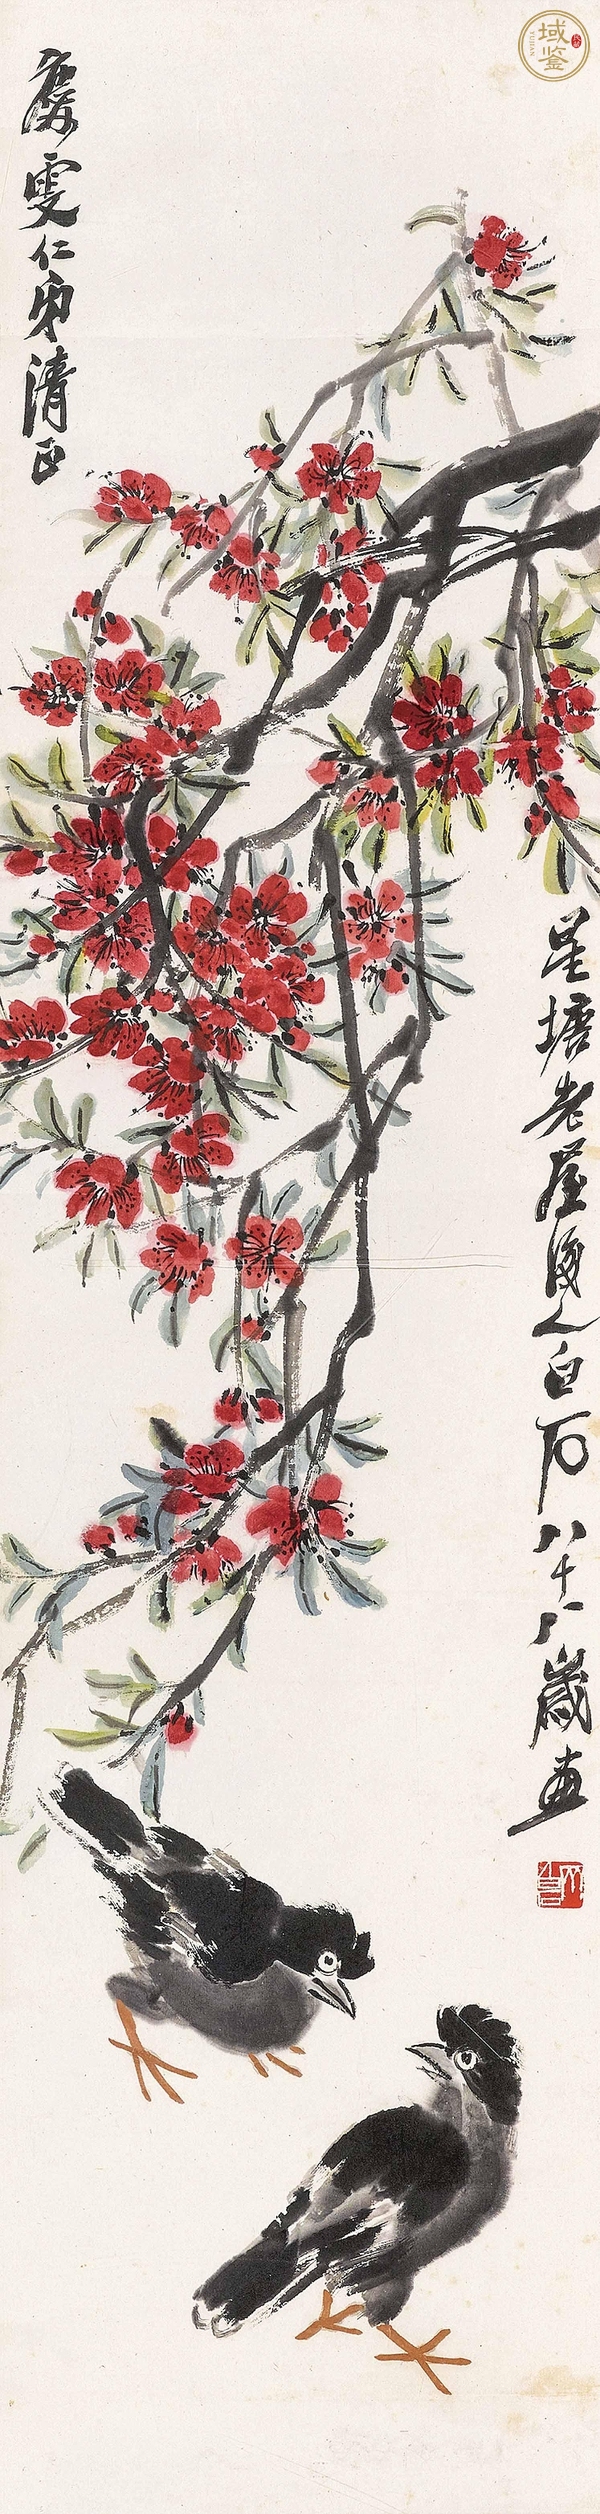 域鉴
YUJIAN
慶雯仁弟清正
星塘老屋後人白石八十八歲畫